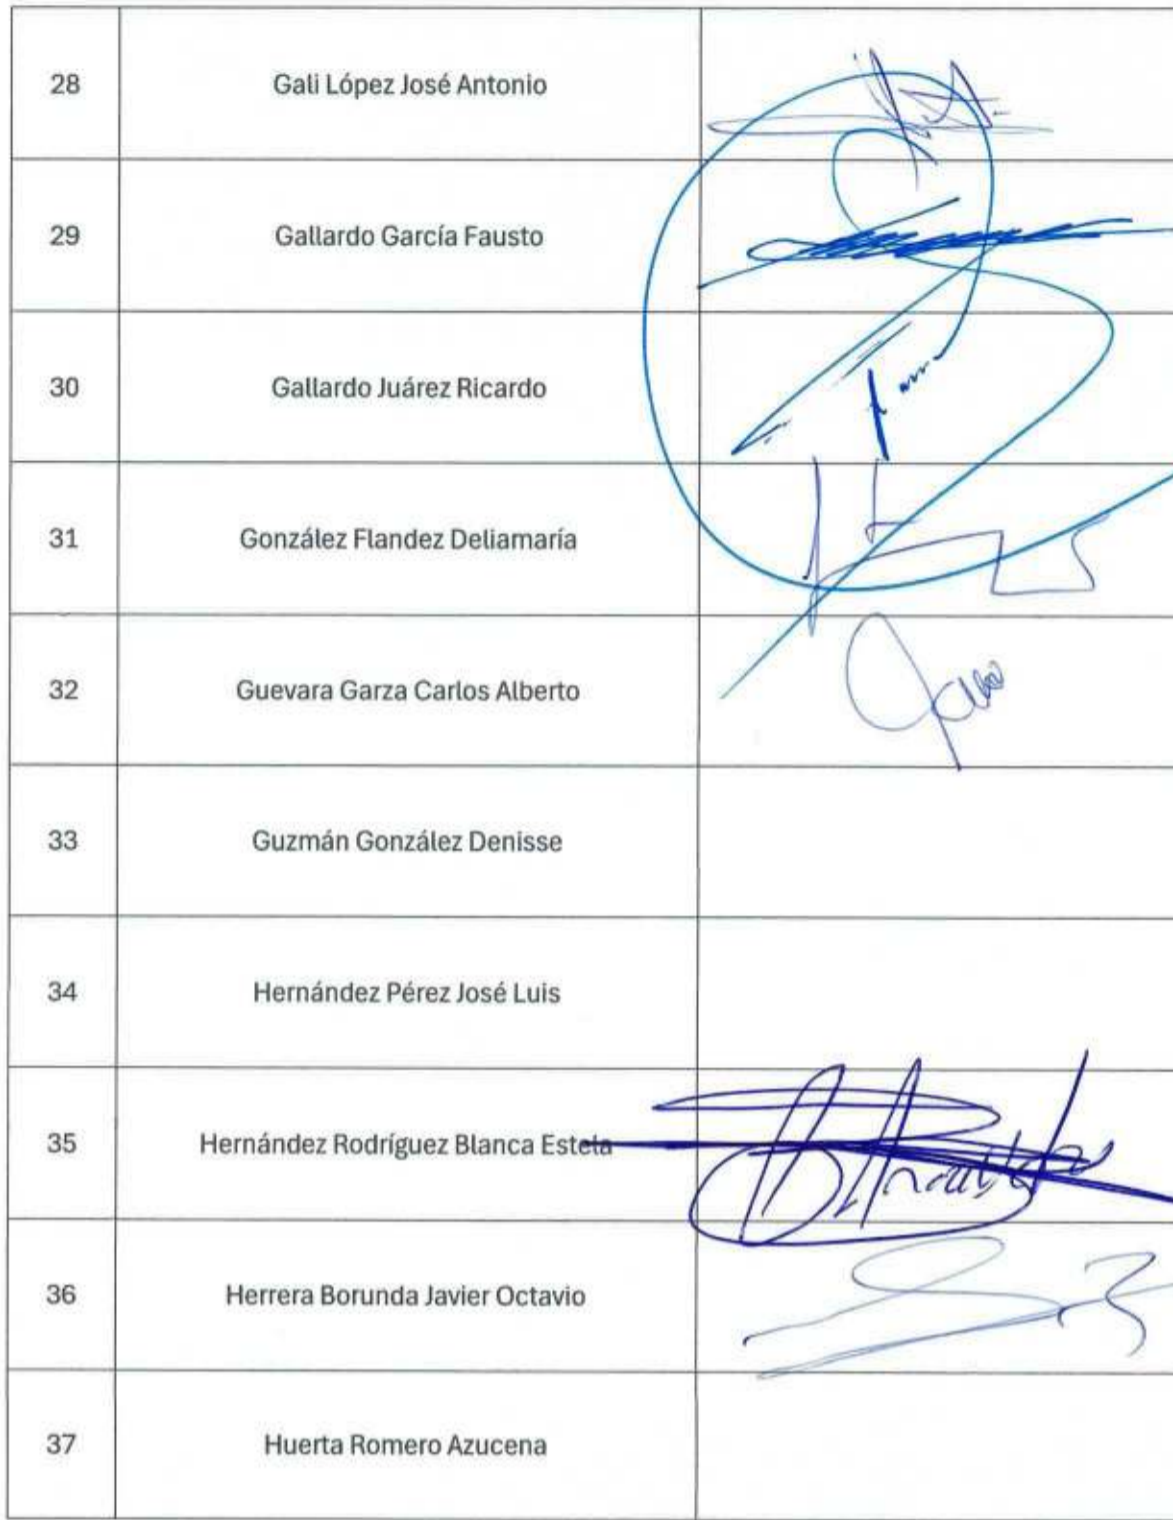 28 Gali López José Antonio
29 Gallardo García Fausto
30 Gallardo Juárez Ricardo
31 González Flandez Deliamaría
32 Guevara Garza Carlos Alberto
33 Guzmán González Denisse
34 Hernández Pérez José Luis
35 Hernández Rodríguez Blanca Estela
36 Herrera Borunda Javier Octavio
37 Huerta Romero Azucena